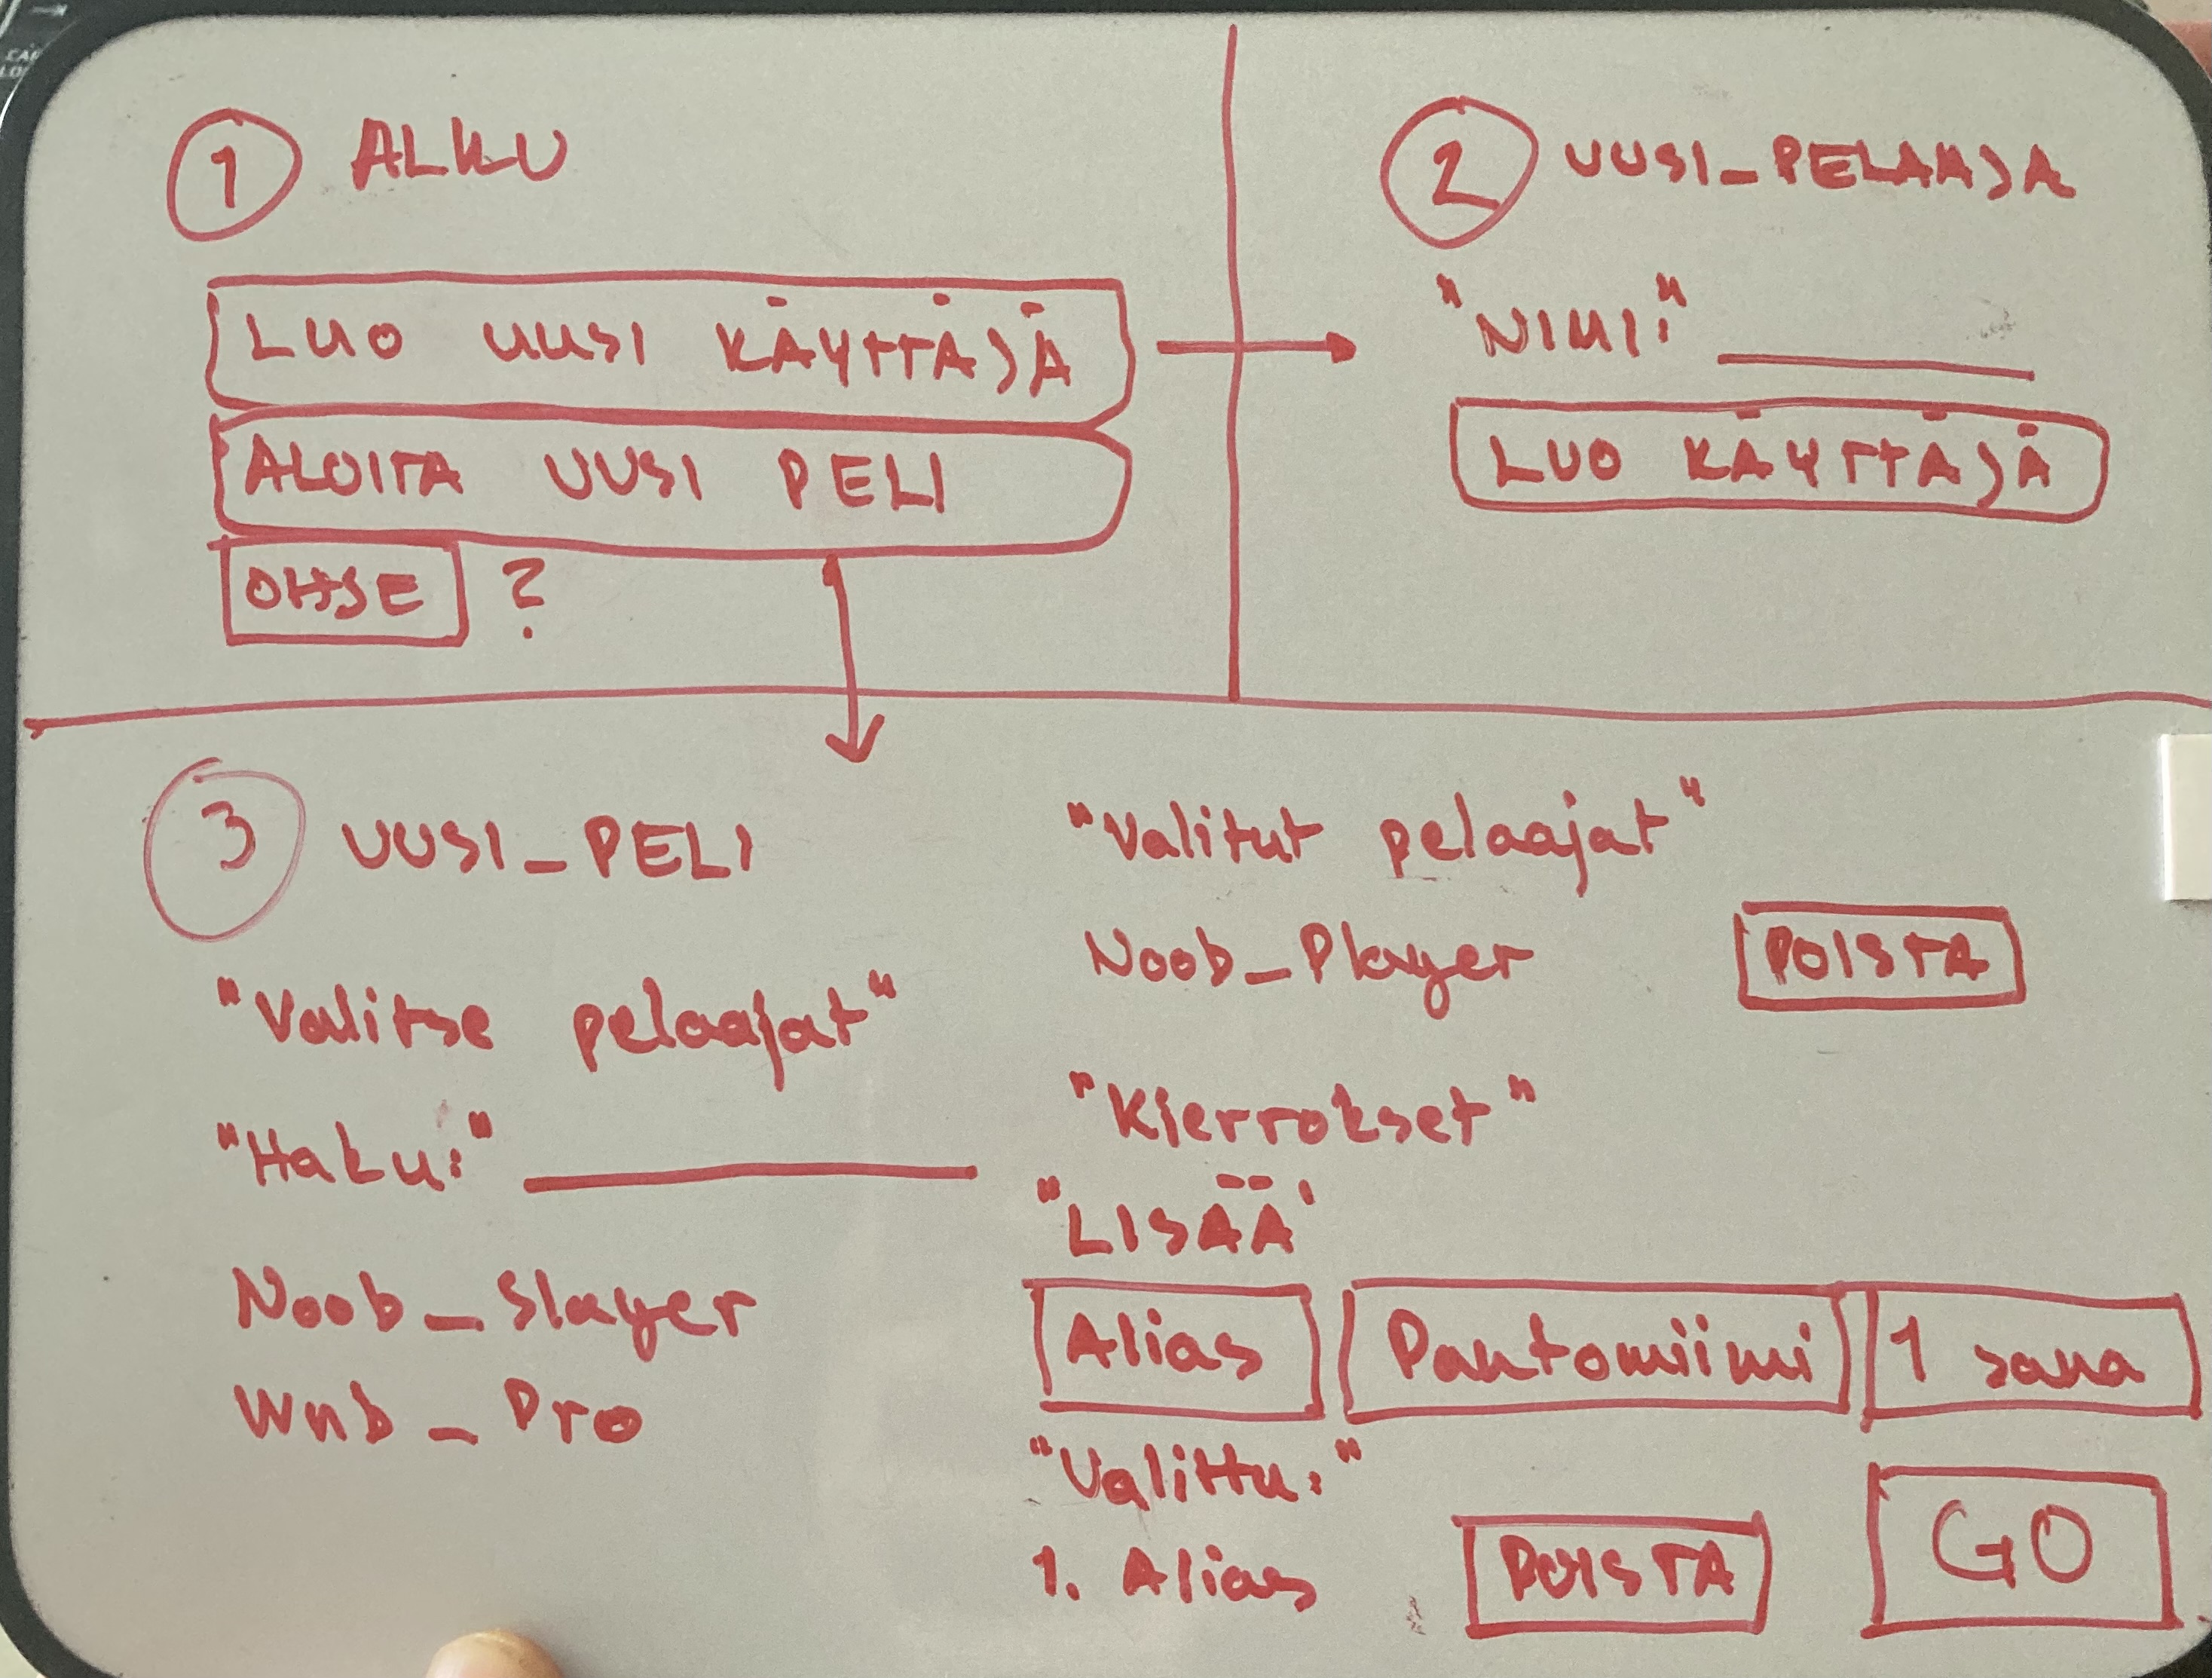 1 ALKU
LUO UUSI KÄYTTÄJÄ
ALOITA UUSI PELI
OHJE ?
2 UUSI_PELAAJA
"NIMI:"
LUO KÄYTTÄJÄ
3 UUSI_PELI
"Valitse pelaajat"
"Haku:"
Noob_Slayer
Wnb_Pro
"Valitut pelaajat"
Noob_Player POISTA
"Kierrokset"
"LISÄÄ'
Alias Pantomiimi 1 sana
"Valittu:"
1. Alias POISTA GO